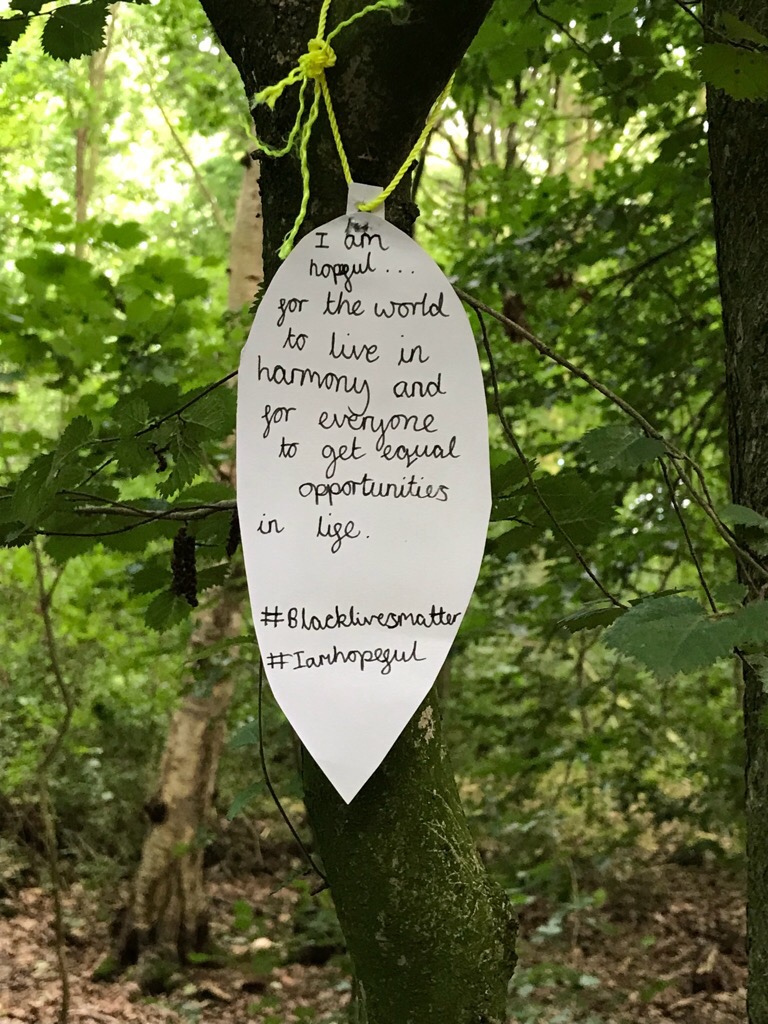 I am
hopeful...
for the world
to live in
harmony and
for everyone
to get equal
opportunities
in life.
#Blacklivesmatter
#Iamhopeful